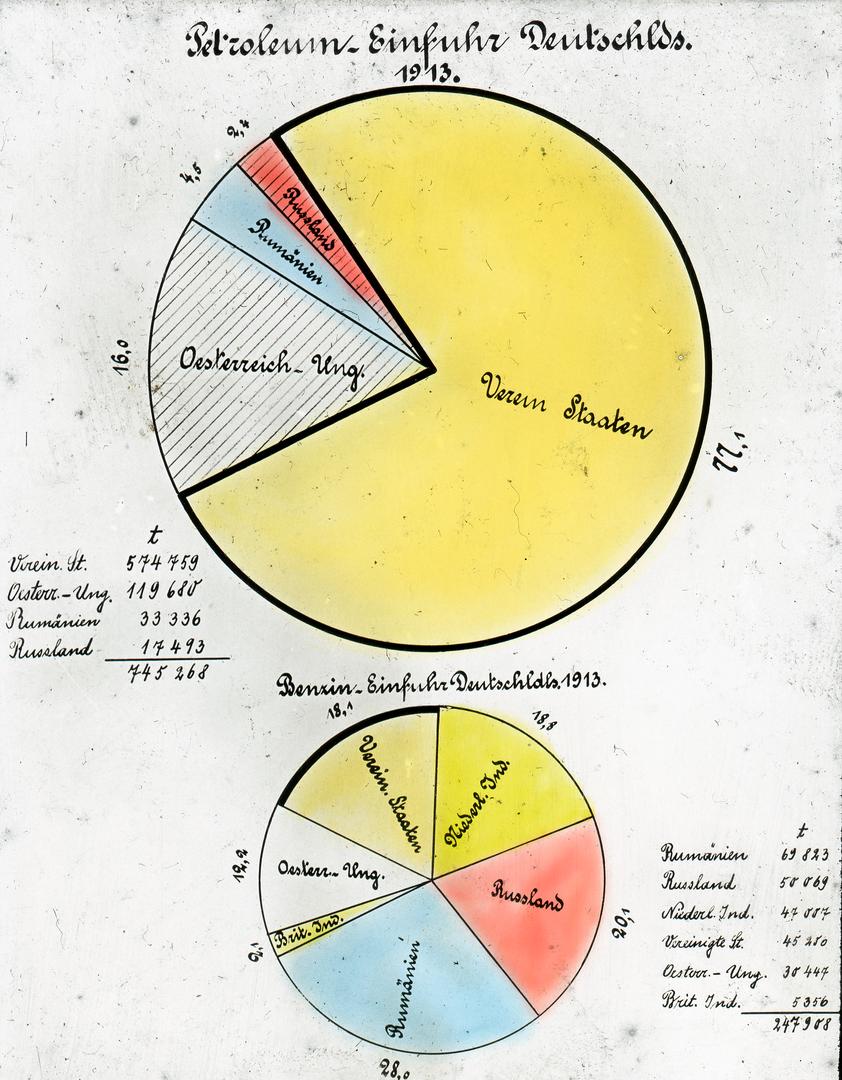 Petroleum-Einfuhr Deutschlds.
1913.
2,4
4,5
Russland
Rumänien
16,0
Oesterreich-Ung.
Verein Staaten
77,1
t
Verein. St. 574 759
Oesterr.-Ung. 119 680
Rumänien 33 336
Russland 17 493
745 268
Benzin-Einfuhr Deutschldls. 1913.
18,1
18,8
Verein. Staaten
Niederl. Ind.
12,2
Oesterr.-Ung.
Russland
20,1
Brit. Ind.
2,1
Rumänien
28,0
t
Rumänien 69 823
Russland 50 069
Niederl. Ind. 47 007
Vereinigte St.
Oesterr.-Ung. 30 447
Brit. Ind. 5 356
247 908